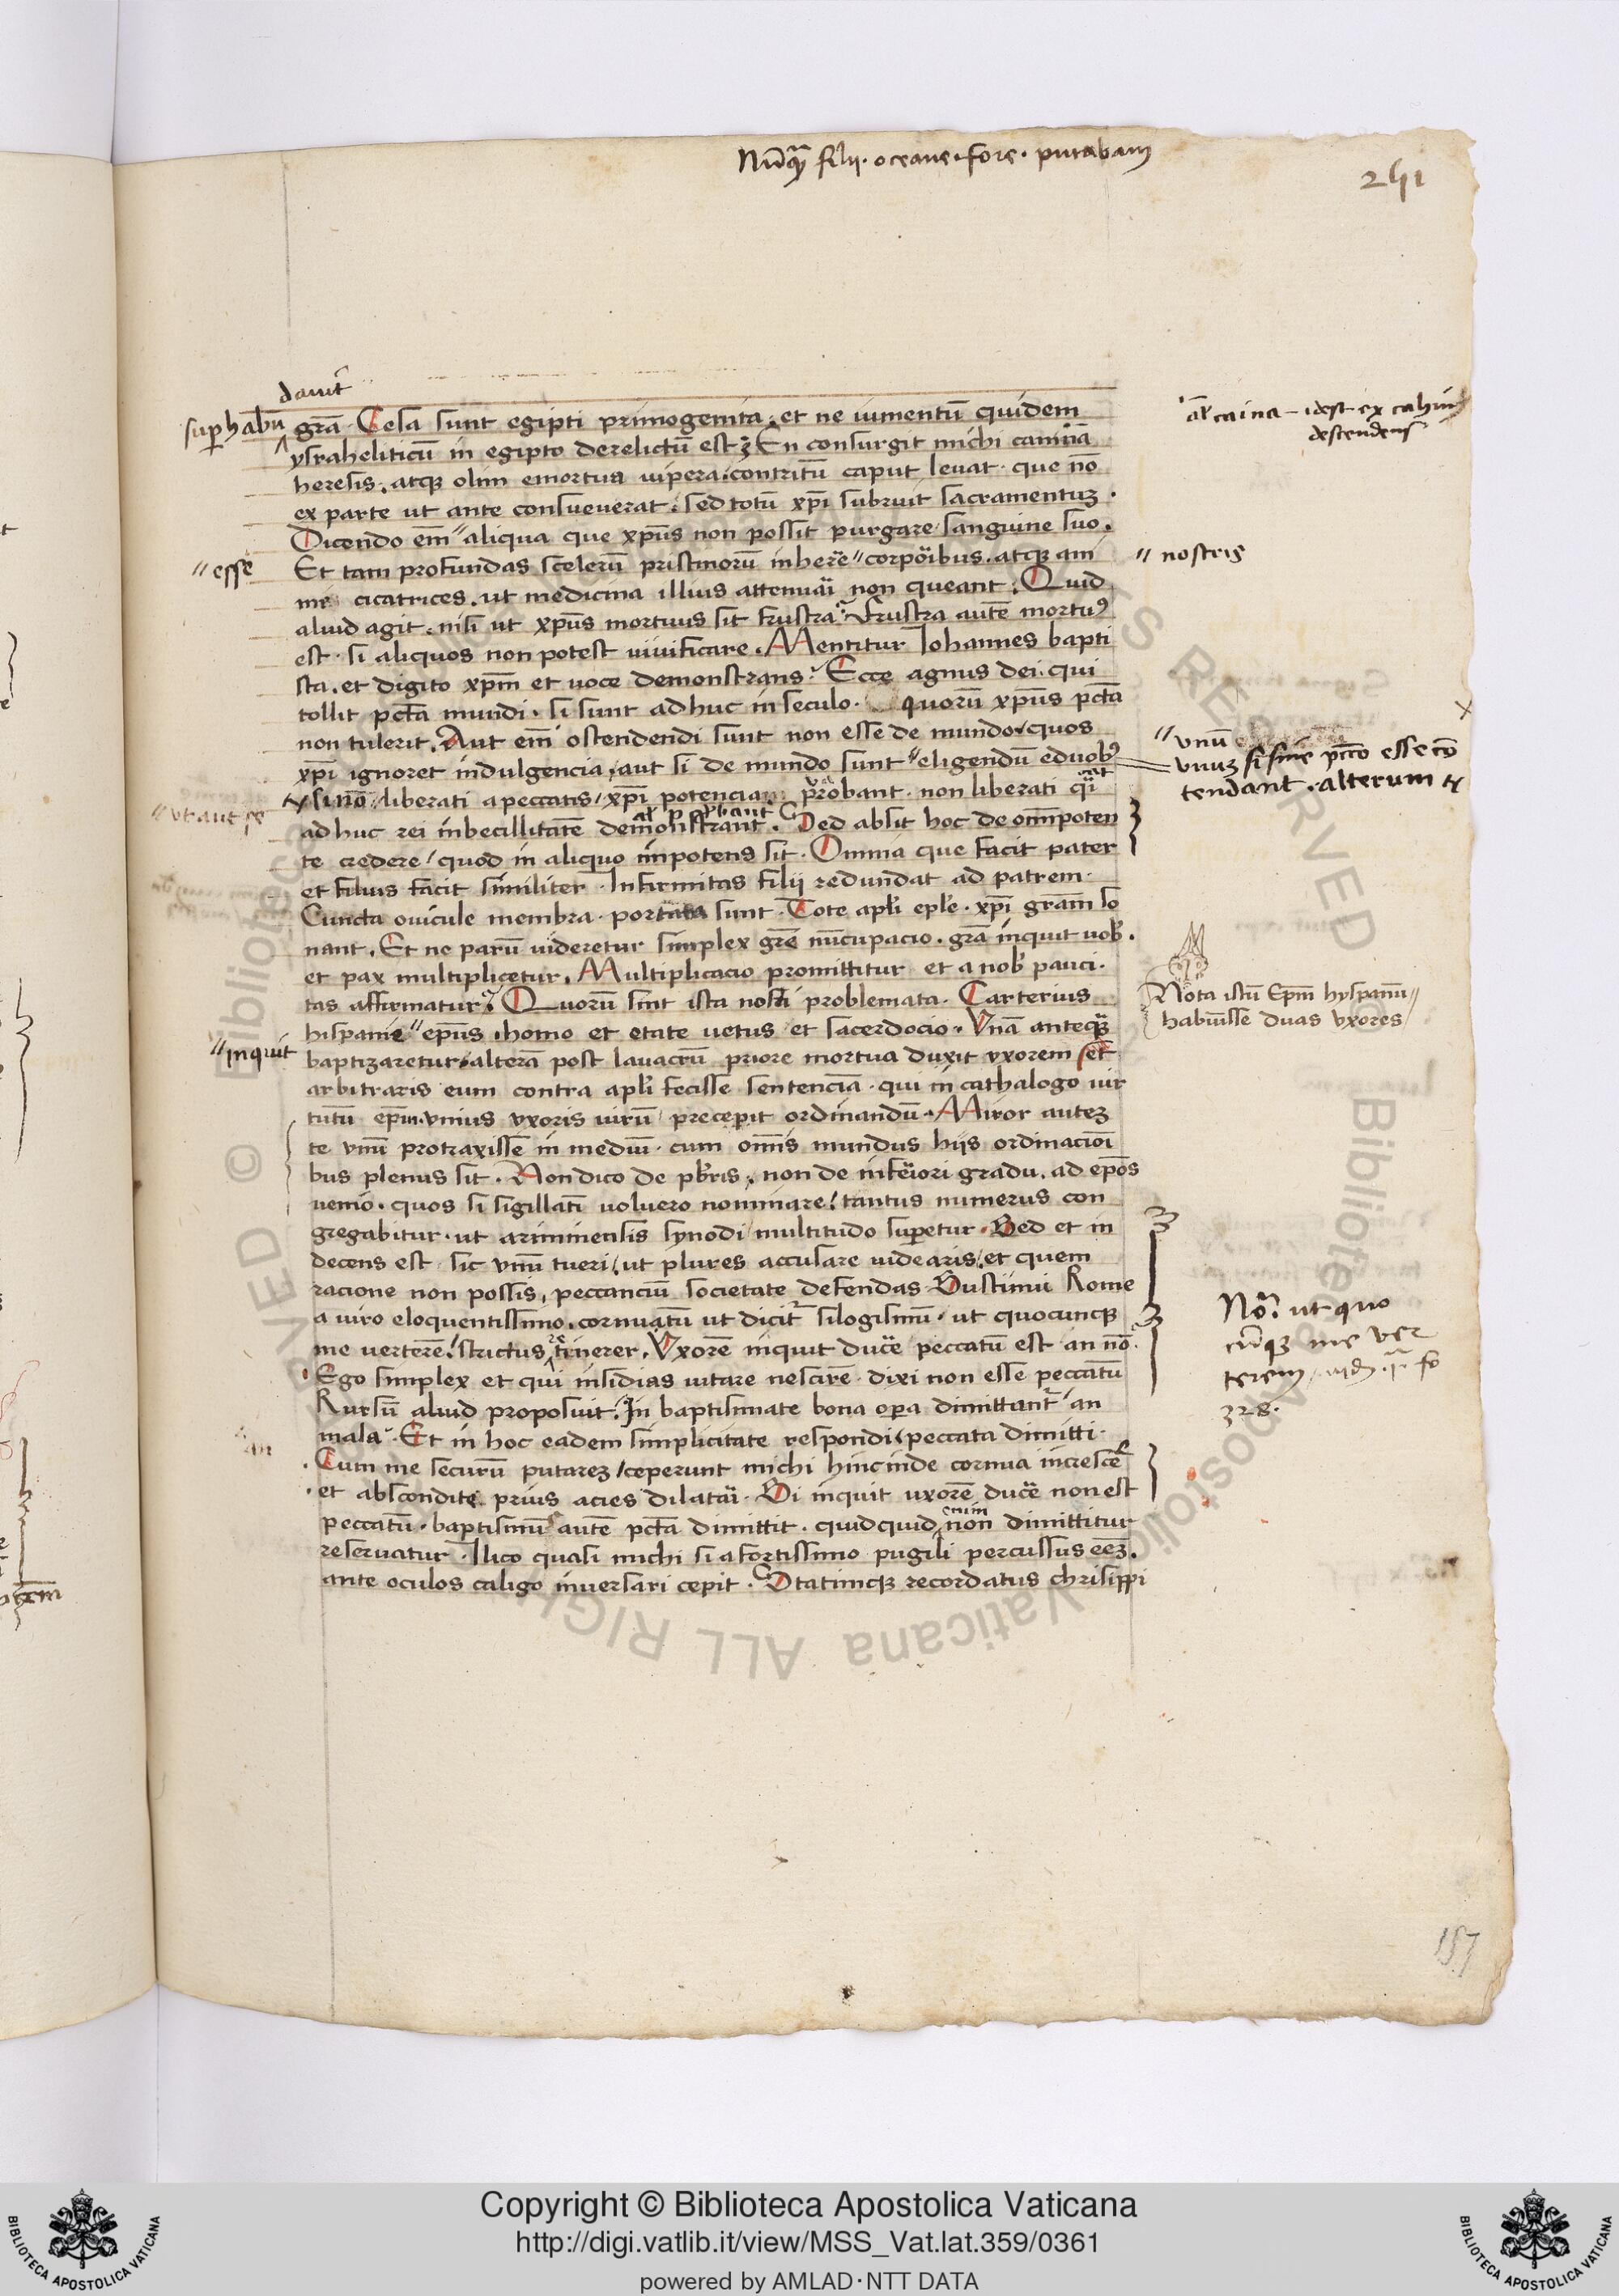 Nūq̄ filii · oceane · fore · putabam
241
dauit
suphabūn
grā · Cesa sunt egipti primogenita · et ne iumentū quidem
ysraheliticū in egipto derelictū est · En consurgit michi caninā
heresis · atq; olim emortua uipera · contritū caput leuat · que nō
ex parte ut ante consueuerat · sed totū xp̄i subruit sacramentuz ·
Dicendo em̄ " aliqua que xp̄us non possit purgare sanguine suo ·
" esse
Et tam profundas scelerū pristinorū inherē " corpōibus · atq; ani
" nostris
me cicatrices · ut medicina illius attenuāi non queant · Quid
aliud agit · nisi ut xp̄us mortuus sit frustra · Frustra autē mortu9
est · si aliquos non potest uiuificare · Mentitur Iohannes bapti
sta · et digito xp̄m et uoce demonstrans · Ecce agnus dei · qui
tollit pctā mundi · si sunt adhuc in seculo · quorū xp̄us pctā
non tulerit · Aut em̄ ostendendi sunt non esse de mundo · quos
xp̄i ignoret indulgencia · aut si de mundo sunt " eligendū eduob9
si nō / liberati a peccatis / xp̄i potencia probant · non liberati q̄i
adhuc rei inbecillitatē demonstrant · Sed absit hoc de om̄ipoten
te credere / quod in aliquo inpotens sit · Omnia que facit pater
et filius facit similiter · Infirmitas filij redundat ad patrem ·
Cuncta ouicule membra · portata sunt · Tote apl̄i epl̄e · xp̄i gram̄ so
nant · Et ne parū uideretur simplex grē nūcupacio · grā inquit uob̄ ·
et pax multiplicetur · Multiplicacio promittitur et a nob̄ pauci ·
tas affirmatur · Quorū sint ista nosti problemata · Carterius
hispanie " epūs · homo et etate uetus et sacerdocio · Vnā anteq̄
" inquit
baptizaretur · alterā post lauacrū priore mortua duxit vxorem set
arbitraris eum contra apl̄i fecisse sentenciā · qui in cathalogo uir
tutū epm̄ · vnius vxoris uirū precepit ordinandū · Miror autez
te vnū protraxisse in mediū · cum om̄is mundus hijs ordinacioi
bus plenus sit · Non dico de pb̄ris · non de inferiori gradu · ad epōs
uenio · quos si sigillatī uoluero nominare / tantus numerus con
gregabitur · ut ariminensis synodi / multitudo supetur · Sed et in
decens est sic vnū tueri / ut plures accusare uidearis · et quem
racione non possis, peccanciū societate defendas · Sustinui Rome
a uiro eloquentissimo · cornuatū ut dicit̄ silogismū · ut quocunq;
me uerterē / strictus tenerer · Vxorē inquit ducē peccatū est an nō ·
Ego simplex et qui insidias uitare nescirē · dixi non esse peccatū
Rursū aliud proposuit · In baptismate bona opa dimittant̄ an
mala · Et in hoc eadem simplicitate respondi / peccata dimitti ·
Cum me securū putarez / ceperunt michi hincinde cornua incresce
et abscondite prius acies dilatāi · Si inquit uxorē ducē non est
enim
peccatū · baptismū autē pctā dimittit · quidquid non dimittitur
reseruatur · Ilico quasi michi si a fortissimo pugili percussus eez ·
ante oculos caligo inuersari cepit · Statimq; recordatus chrisippi
al̄ caina – idest ex cahin
descendens
" vnū
vnuz si sine pctō esse cō
tendant · alterum
Nota istū Epm̄ hyspanū
habuisse duas vxores
Nō: ut quo
cūq; me ver
terem
328 ·
157
Copyright © Biblioteca Apostolica Vaticana
http://digi.vatlib.it/view/MSS_Vat.lat.359/0361
powered by AMLAD·NTT DATA
BIBLIOTECA APOSTOLICA VATICANA
BIBLIOTECA APOSTOLICA VATICANA